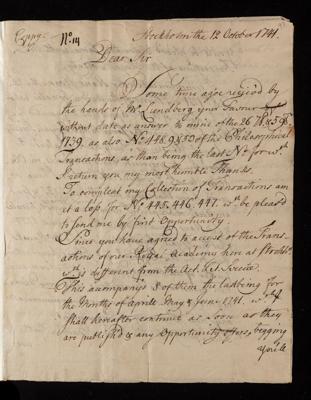 Copy.
No. 14
Stockholm the 12 October 1741.
Dear Sir
Some time agoe receivd by
the hands of Mr. Lundberg your Favour
without date as answer to mine of the 26
1739. as also No. 448. 9 & 50 of the Philosophical
Transactions, as than being the last No. for wch.
I return you my most humble Thanks.
To compleat my Collection of Transactions am
at a loss for No. 445. 446. 447. wch. be pleasd
to send me by first Opportunity.
Since you have agreed to accept of the Trans
actions of our Royal Academy here at Stockh:
wch. is different from the Act. Lit. Sveciæ.
This accompanies 8 of them the
the Months of Aprill May & June 1741.
shall hereafter continue as soon as they
are publishd & any Opportunity offers, begging
you'll